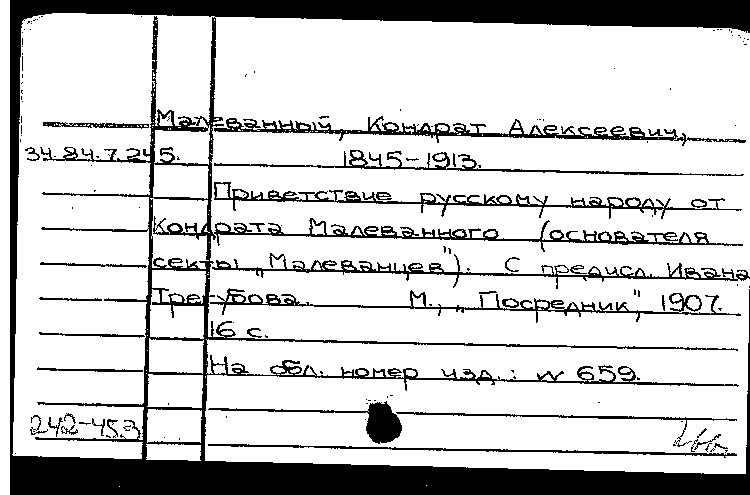 Малеванный, Кондрат Алексеевич,
34.84.7.245. 1845-1913.
Приветствие русскому народу от
Кондрата Малеванного (основателя
секты „Малеванцев"). С предисл. Ивана
Трегубова. М., „Посредник", 1907.
16 с.
На обл. номер изд.: № 659.
242-453